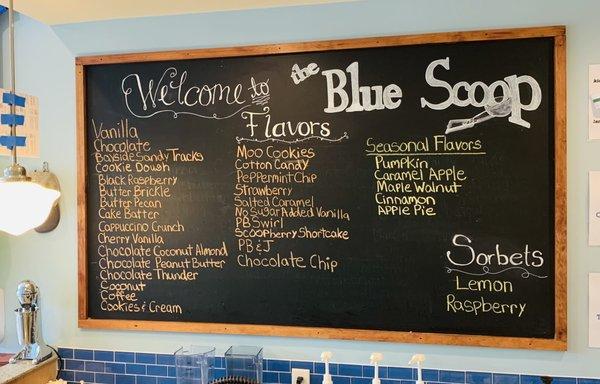 Welcome to the Blue Scoop
Flavors
Vanilla
Chocolate
Bayside Sandy Tracks
Cookie Dough
Black Raspberry
Butter Brickle
Butter Pecan
Cake Batter
Cappuccino Crunch
Cherry Vanilla
Chocolate Coconut Almond
Chocolate Peanut Butter
Chocolate Thunder
Coconut
Coffee
Cookies & Cream
Moo Cookies
Cotton Candy
Peppermint Chip
Strawberry
Salted Caramel
No Sugar Added Vanilla
PB Swirl
Scoopberry Shortcake
PB & J
Chocolate Chip
Seasonal Flavors
Pumpkin
Caramel Apple
Maple Walnut
Cinnamon
Apple Pie
Sorbets
Lemon
Raspberry